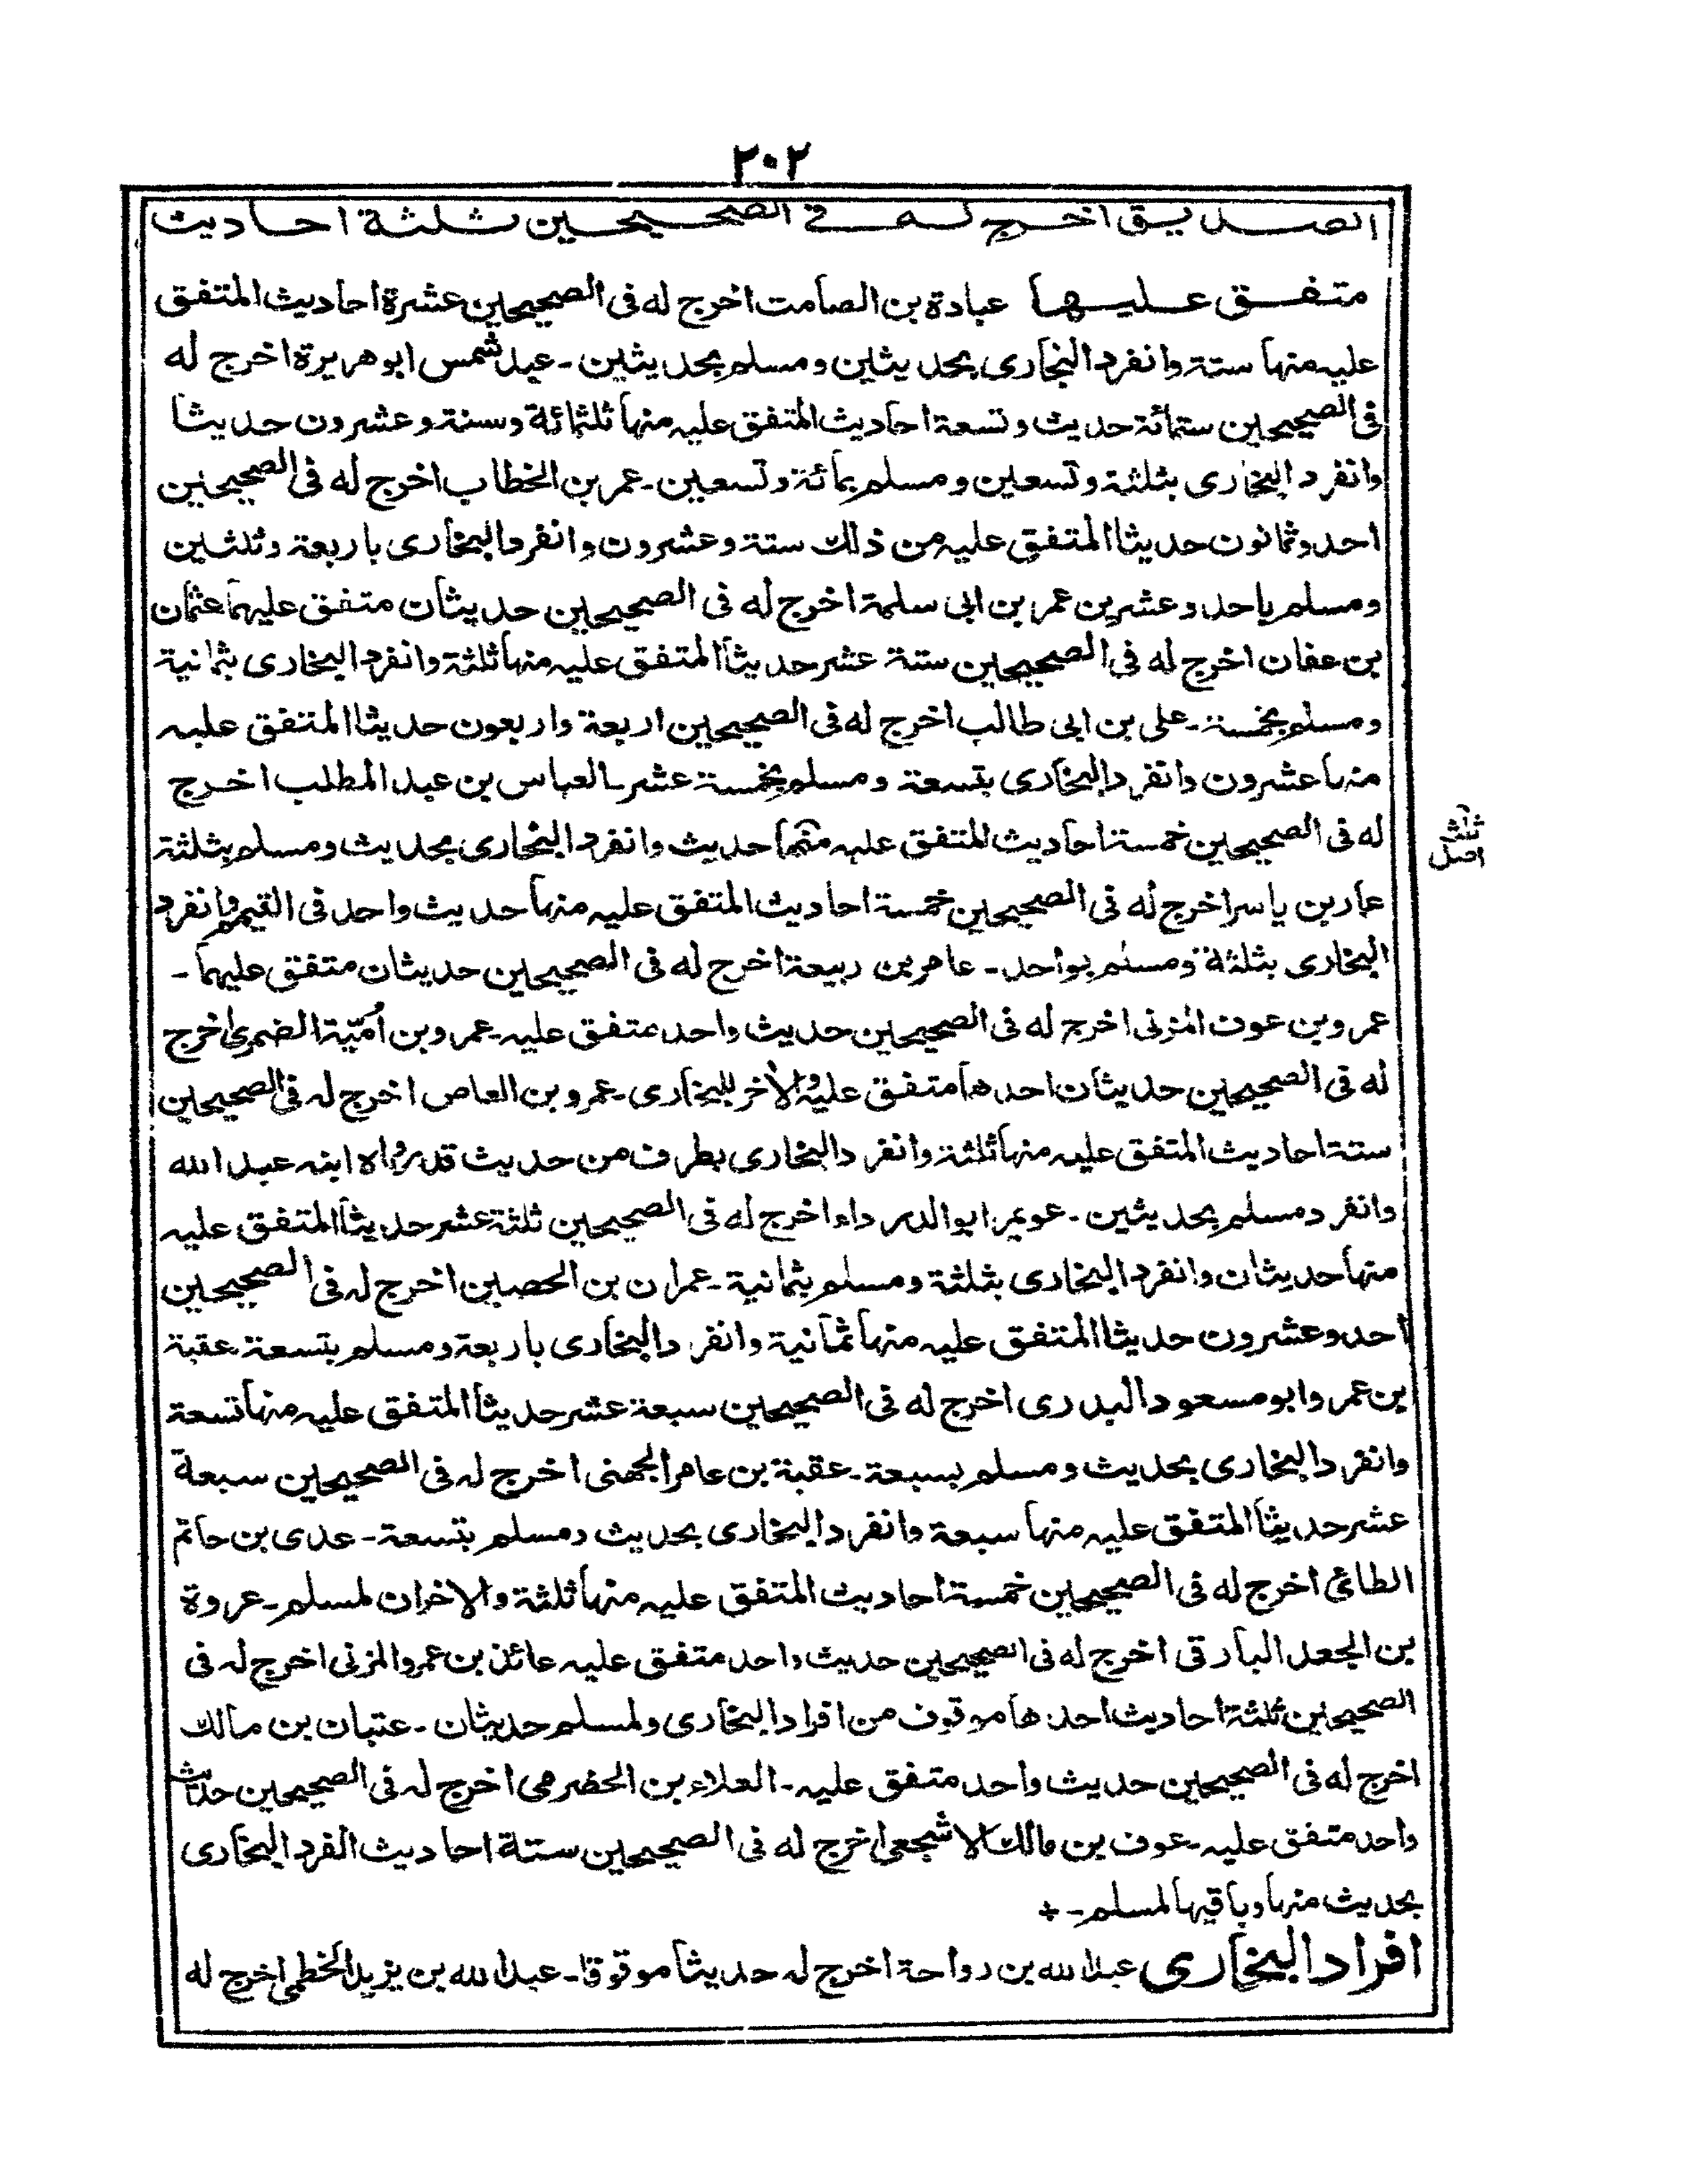 ٢٠٢
الصديق اخرج له في الصحيحين ثلثة احاديث
متفق عليها عبادة بن الصامت اخرج له فى الصحيحين عشرة احاديث المتفق
عليه منها ستة وانفرد البخارى بحديثين ومسلم بحديثين ـ عبد شمس ابو هريرة اخرج له
فى الصحيحين ستمائة حديث وتسعة احاديث المتفق عليه منها ثلثمائة وستة وعشرون حديثا
وانفرد البخارى بثلثة وتسعين ومسلم بمائة وتسعين ـ عمر بن الخطاب اخرج له فى الصحيحين
احد وثمانون حديثا المتفق عليه من ذلك ستة وعشرون وانفرد البخارى باربعة وثلثين
ومسلم باحد وعشرين عمر بن ابى سلمة اخرج له فى الصحيحين حديثان متفق عليهما عثمان
بن عفان اخرج له فى الصحيحين ستة عشر حديثا المتفق عليه منها ثلثة وانفرد البخارى بثمانية
ومسلم بخمسة ـ على بن ابى طالب اخرج له فى الصحيحين اربعة واربعون حديثا المتفق عليه
منها عشرون وانفرد البخارى بتسعة ومسلم بخمسة عشر ـ العباس بن عبد المطلب اخرج
له فى الصحيحين خمسة احاديث المتفق عليه منها حديث وانفرد البخارى بحديث ومسلم بثلثة
ثلث
اصل
عمار بن ياسر اخرج له فى الصحيحين خمسة احاديث المتفق عليه منها حديث واحد فى التيمم وانفرد
البخارى بثلثة ومسلم بواحد ـ عامر بن ربيعة اخرج له فى الصحيحين حديثان متفق عليهما ـ
عمرو بن عوف المزنى اخرج له فى الصحيحين حديث واحد متفق عليه ـ عمرو بن اُميّة الضمرى اخرج
له فى الصحيحين حديثان احدهما متفق عليه والأخر للبخارى ـ عمرو بن العاص اخرج له فى الصحيحين
ستة احاديث المتفق عليه منها ثلثة وانفرد البخارى بطرف من حديث قد رواه ابنه عبد الله
وانفرد مسلم بحديثين ـ عويمر ابو الدرداء اخرج له فى الصحيحين ثلثة عشر حديثا المتفق عليه
منها حديثان وانفرد البخارى بثلثة ومسلم بثمانية ـ عمران بن الحصين اخرج له فى الصحيحين
احد وعشرون حديثا المتفق عليه منها ثمانية وانفرد البخارى باربعة ومسلم بتسعة عقبة
بن عمر وابو مسعود البدرى اخرج له فى الصحيحين سبعة عشر حديثا المتفق عليه منها تسعة
وانفرد البخارى بحديث ومسلم بسبعة ـ عقبة بن عامر الجهنى اخرج له فى الصحيحين سبعة
عشر حديثا المتفق عليه منها سبعة وانفرد البخارى بحديث ومسلم بتسعة ـ عدى بن حاتم
الطائى اخرج له فى الصحيحين خمسة احاديث المتفق عليه منها ثلثة والاخران لمسلم ـ عروة
بن الجعد البارقى اخرج له فى الصحيحين حديث واحد متفق عليه عائذ بن عمرو المزنى اخرج له فى
الصحيحين ثلثة احاديث احدها موقوف من افراد البخارى ولمسلم حديثان ـ عتبان بن مالك
اخرج له فى الصحيحين حديث واحد متفق عليه ـ العلاء بن الحضرمى اخرج له فى الصحيحين حديث
واحد متفق عليه ـ عوف بن مالك الاشجعى اخرج له فى الصحيحين ستة احاديث انفرد البخارى
بحديث منها وباقيها لمسلم ـ +
افراد البخارى عبد الله بن رواحة اخرج له حديثا موقوفا ـ عبد الله بن يزيد الخطمى اخرج له